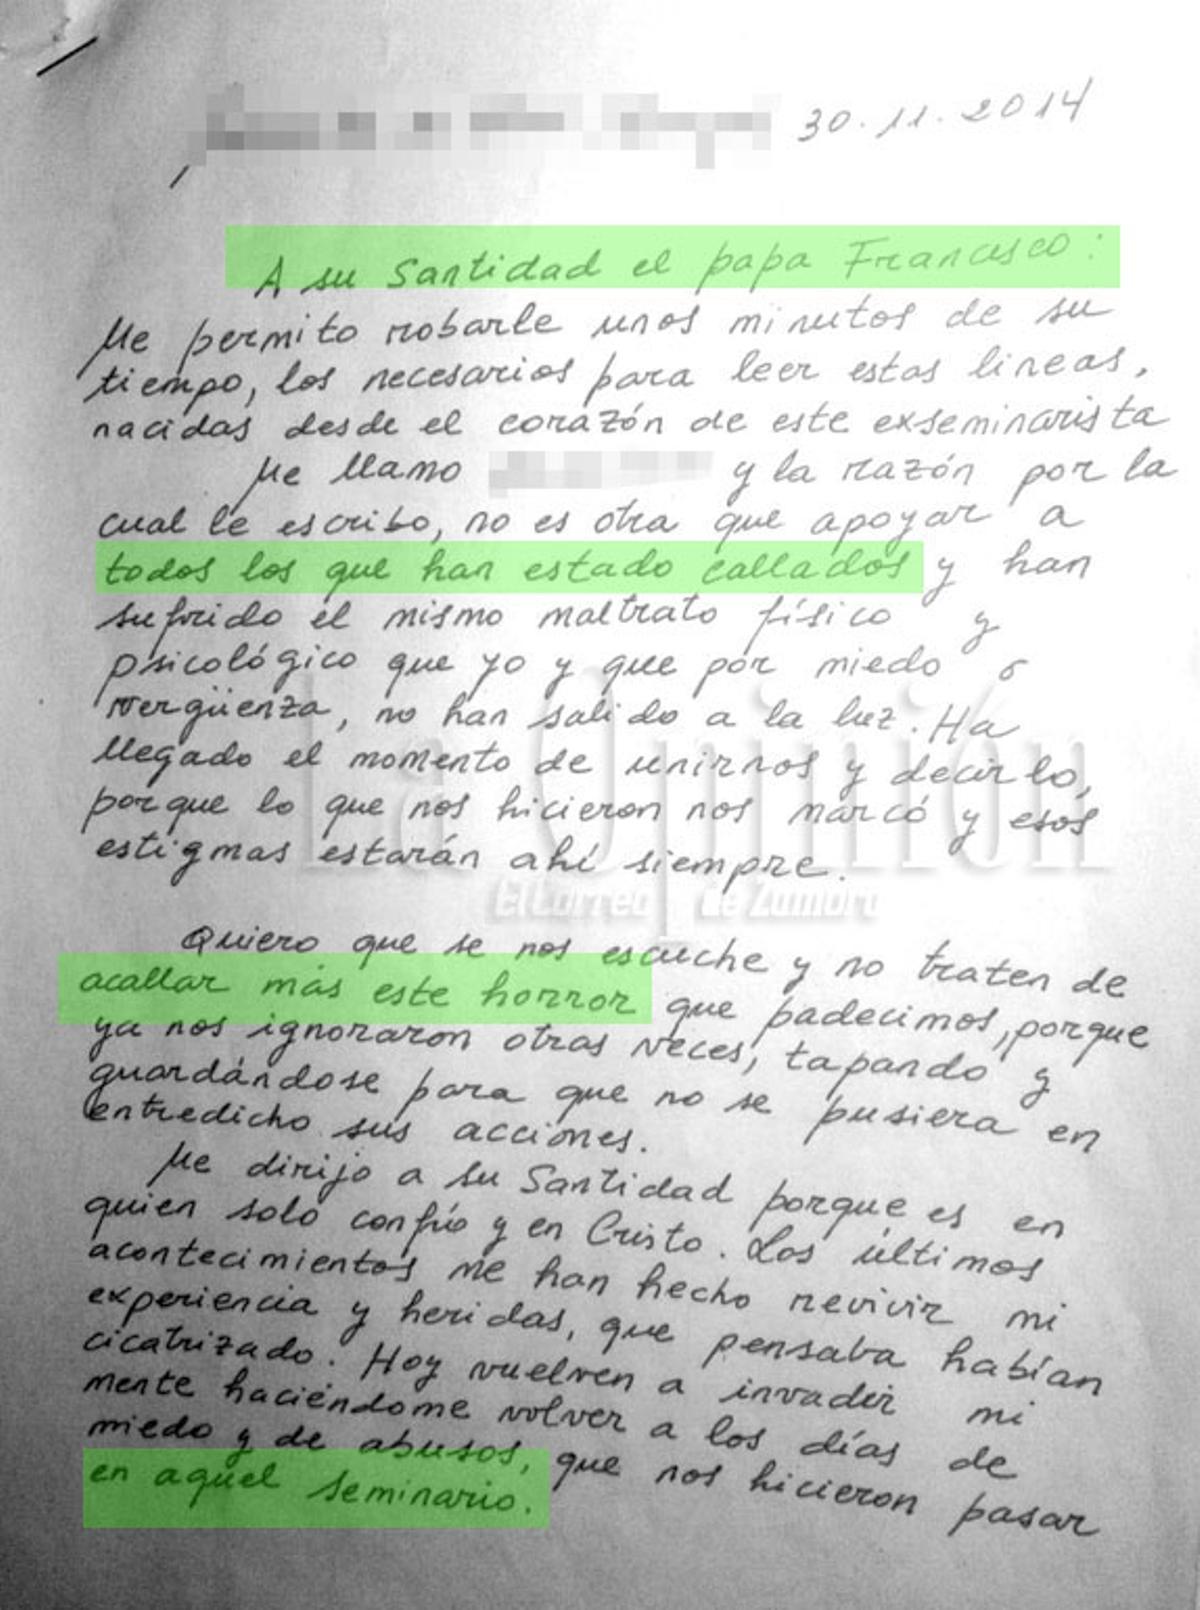 30.11.2014
A su Santidad el papa Francisco:
Me permito robarle unos minutos de su
tiempo, los necesarios para leer estas lineas,
nacidas desde el corazón de este exseminarista
Me llamo y la razón por la
cual le escribo, no es otra que apoyar a
todos los que han estado callados y han
sufrido el mismo maltrato físico y
psicológico que yo y que por miedo o
vergüenza, no han salido a la luz. Ha
llegado el momento de unirnos y decirlo,
porque lo que nos hicieron nos marcó y esos
estigmas estarán ahí siempre.
La Opinión
El Correo de Zamora
Quiero que se nos escuche y no traten de
acallar más este horror que padecimos, porque
ya nos ignoraron otras veces, tapando y
guardándose para que no se pusiera en
entredicho sus acciones.
Me dirijo a su Santidad porque es en
quien solo confío y en Cristo. Los últimos
acontecimientos me han hecho revivir mi
experiencia y heridas, que pensaba habían
cicatrizado. Hoy vuelven a invadir mi
mente haciéndome volver a los días de
miedo y de abusos, que nos hicieron pasar
en aquel seminario.